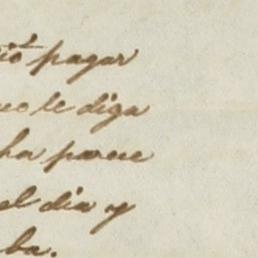 pagar
le diga
ha parece
el dia y
ba.